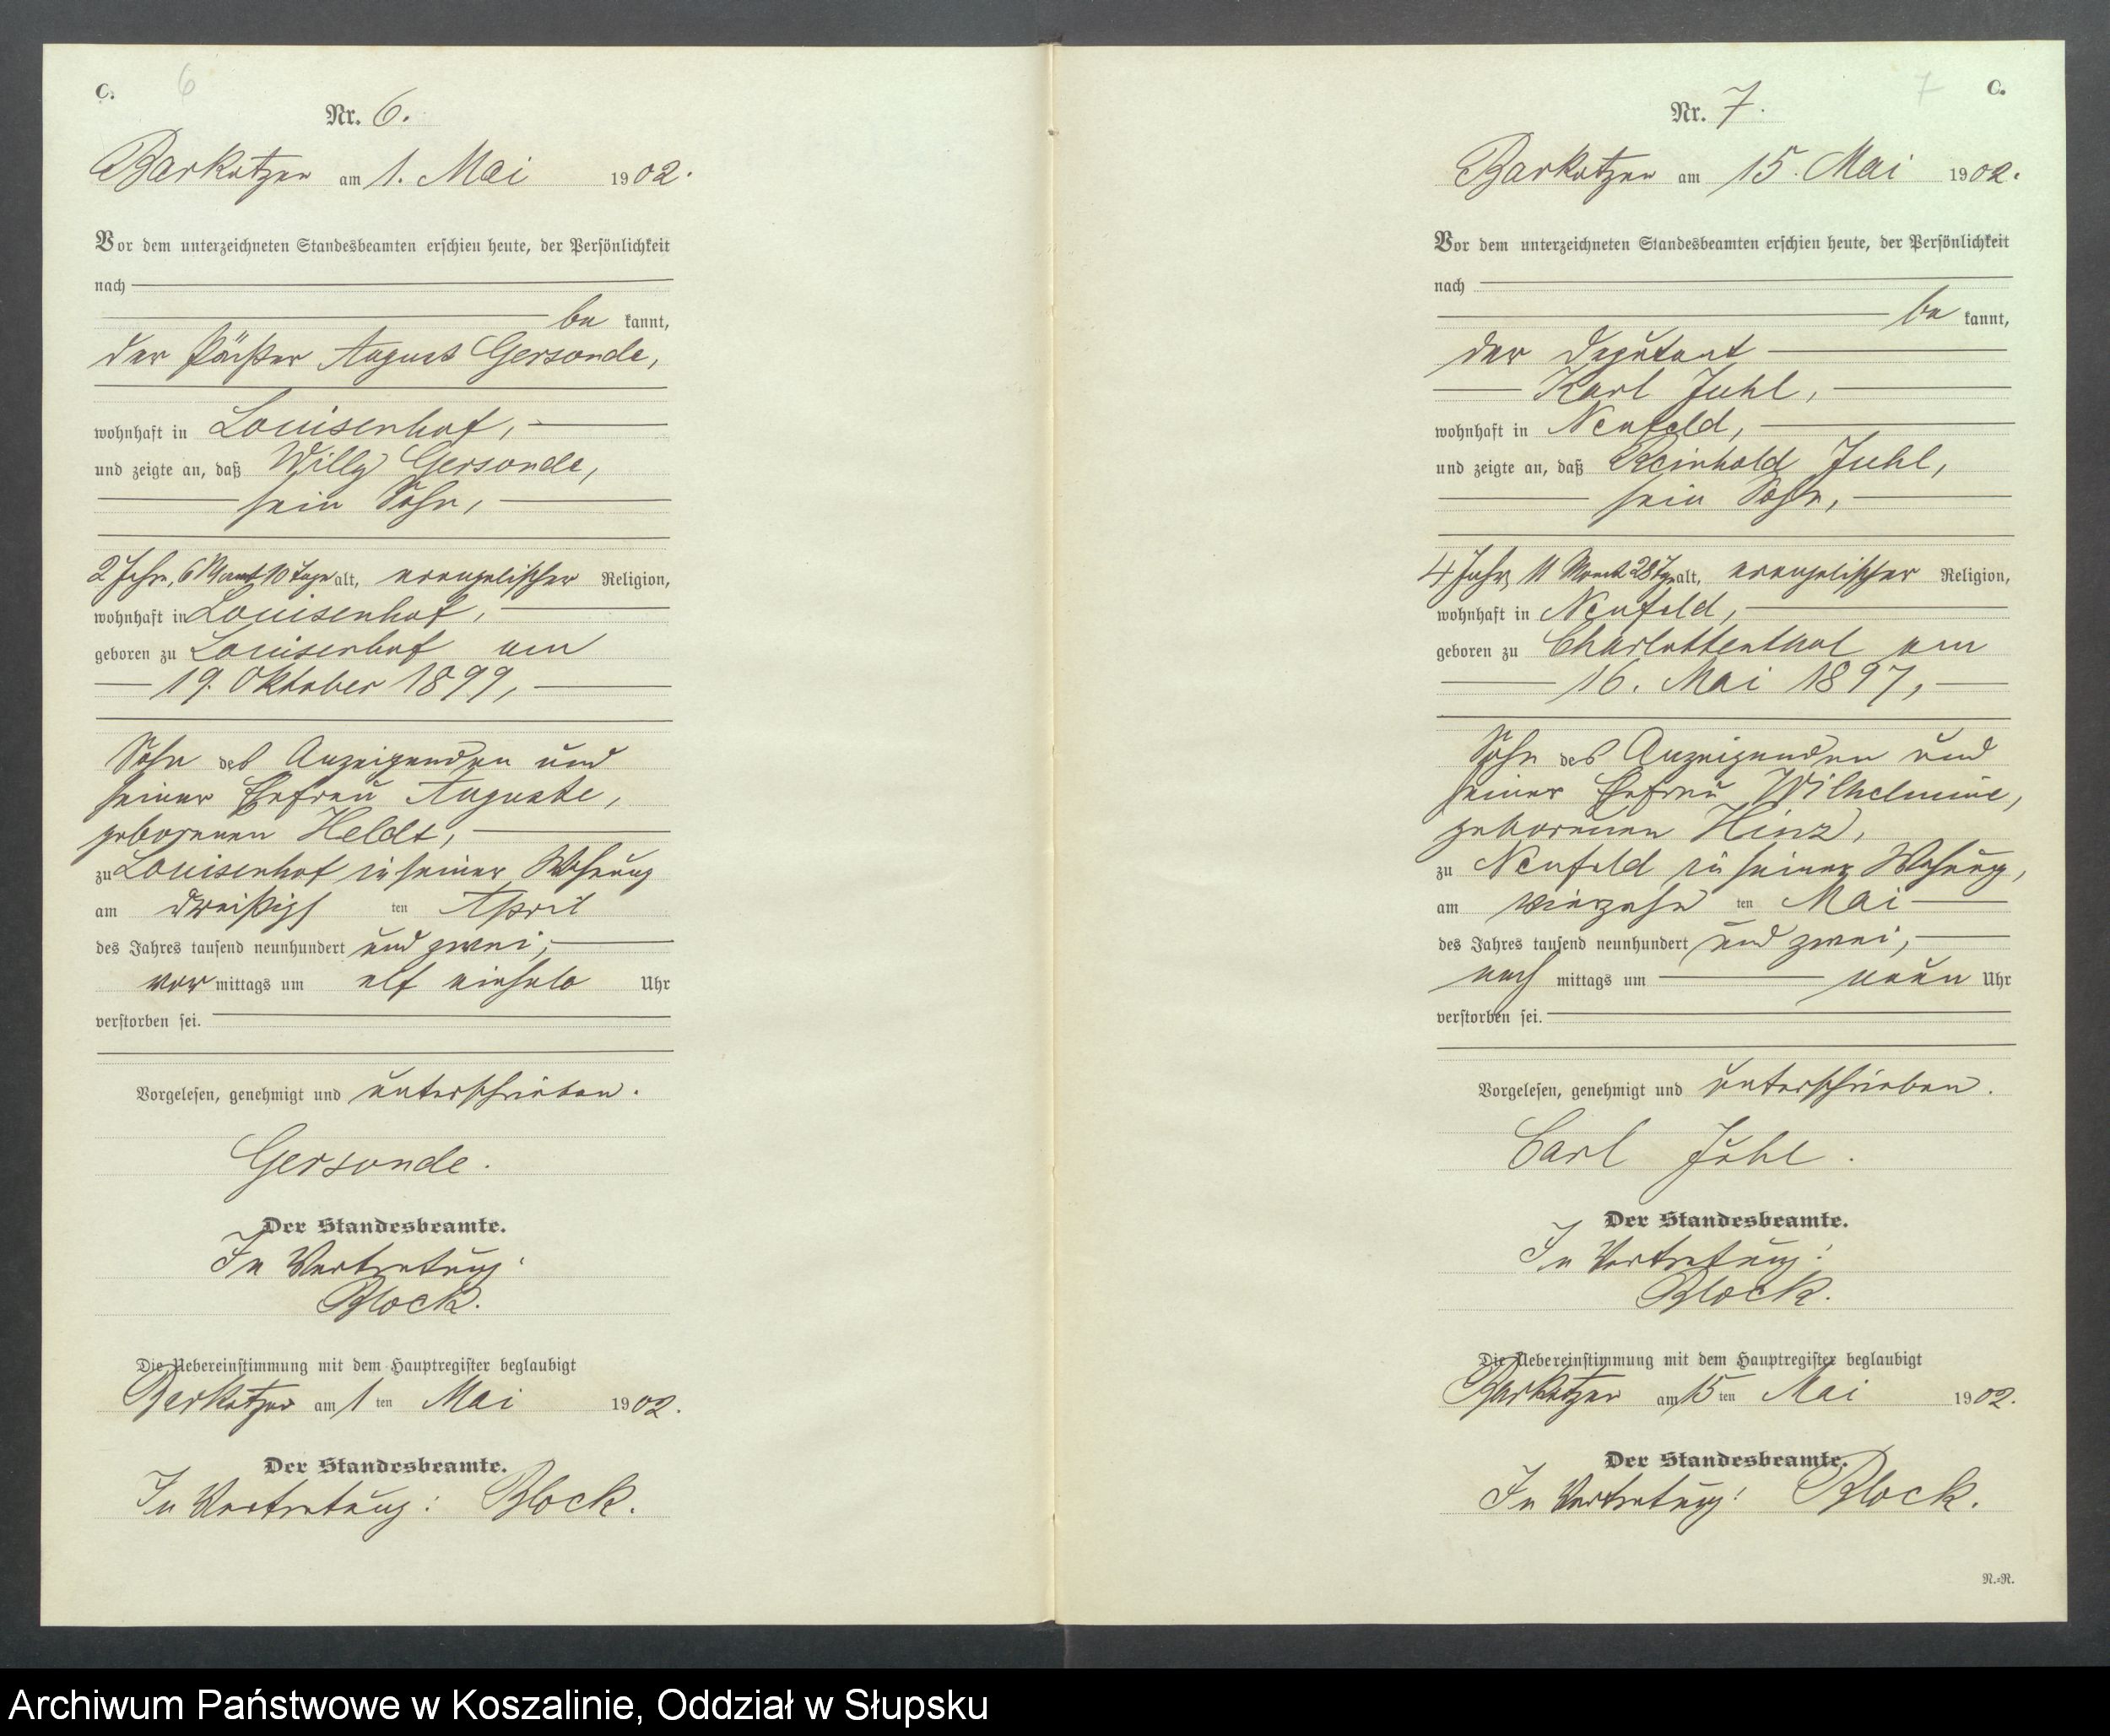 C. 6
Nr. 6.
Barkotzen am 1. Mai 1902.
Vor dem unterzeichneten Standesbeamten erschien heute, der Persönlichkeit
nach
be kannt,
der Pächter August Gersonde,
wohnhaft in Louisenhof,
und zeigte an, daß Willy Gersonde,
sein Sohn,
2 Jahre, 6 Monat 10 Tage alt, evangelischer Religion,
wohnhaft in Louisenhof,
geboren zu Louisenhof am
19. Oktober 1899,
Sohn des Anzeigenden und
seiner Ehefrau Auguste,
geborenen Heldt,
zu Louisenhof in seiner Wohnung
am dreißigs ten April
des Jahres tausend neunhundert und zwei,
vor mittags um elf einhalb Uhr
verstorben sei.
Vorgelesen, genehmigt und unterschrieben.
Gersonde.
Der Standesbeamte.
In Vertretung:
Block.
Die Uebereinstimmung mit dem Hauptregister beglaubigt
Barkotzen am 1 ten Mai 1902.
Der Standesbeamte.
In Vertretung: Block.
7 C.
Nr. 7.
Barkotzen am 15. Mai 1902.
Vor dem unterzeichneten Standesbeamten erschien heute, der Persönlichkeit
nach
be kannt,
der Deputant
Karl Juhl,
wohnhaft in Neufeld,
und zeigte an, daß Reinhold Juhl,
sein Sohn,
4 Jahr, 11 Monat 28 Tage alt, evangelischer Religion,
wohnhaft in Neufeld,
geboren zu Charlottenthal am
16. Mai 1897,
Sohn des Anzeigenden und
seiner Ehefrau Wilhelmine,
geborenen Hinz,
zu Neufeld in seiner Wohnung,
am vierzehn ten Mai
des Jahres tausend neunhundert und zwei,
nach mittags um neun Uhr
verstorben sei.
Vorgelesen, genehmigt und unterschrieben.
Carl Juhl.
Der Standesbeamte.
In Vertretung:
Block.
Die Uebereinstimmung mit dem Hauptregister beglaubigt
Barkotzen am 15 ten Mai 1902.
Der Standesbeamte.
In Vertretung: Block.
N.=N.
Archiwum Państwowe w Koszalinie, Oddział w Słupsku